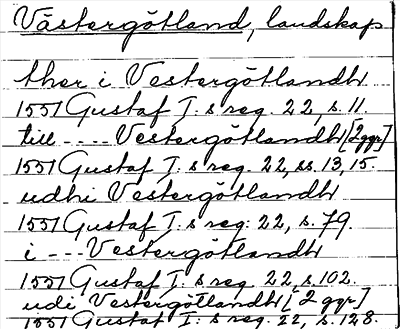 Västergötland, landskap
ther i Vestergötlandh
1551 Gustaf I:s reg. 22, s. 11.
till .... Vestergötlandh [2 ggr]
1551 Gustaf I:s reg. 22, ss. 13, 15.
udhi Vestergötlandh
1551 Gustaf I:s reg. 22, s. 79.
i --- Vestergötlandh
1551 Gustaf I:s reg. 22, s. 102.
udi Vestergötlandh [2 ggr]
1551 Gustaf I:s reg. 22, s. 128.